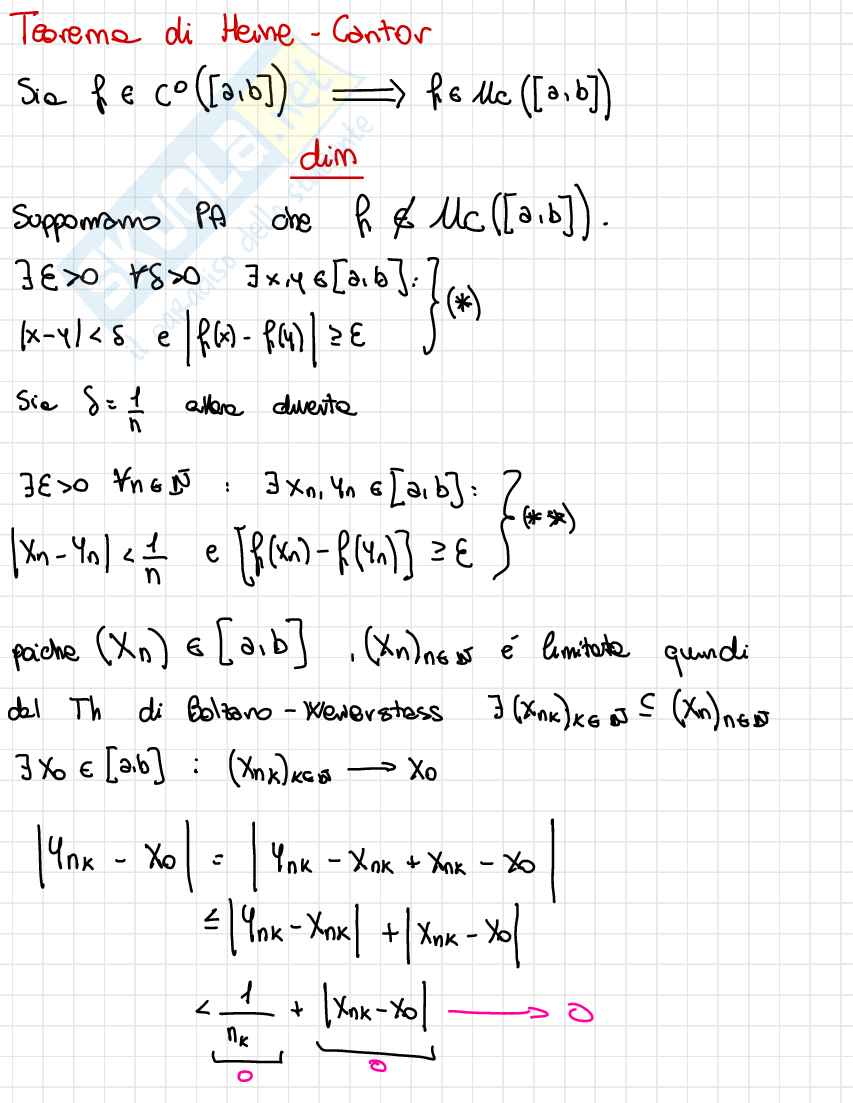 Teorema di Heine - Cantor
Sia f ∈ C⁰([a,b]) ⟹ f ∈ Uc([a,b])
dim
Supponiamo PA che f ∉ Uc([a,b]).
∃ε>0 ∀δ>0 ∃x,y ∈ [a,b]: } (*)
|x-y| < δ e |f(x) - f(y)| ≥ ε
Sia δ = 1/n allora diventa
∃ε>0 ∀n∈ℕ : ∃xₙ, yₙ ∈ [a,b]: } (**)
|xₙ - yₙ| < 1/n e [f(xₙ) - f(yₙ)] ≥ ε
poiche (xₙ) ∈ [a,b], (xₙ)ₙ∈ℕ é limitata quindi
dal Th di Bolzano - Weierstass ∃ (xₙₖ)ₖ∈ℕ ⊆ (xₙ)ₙ∈ℕ
∃x₀ ∈ [a,b] : (xₙₖ)ₖ∈ℕ ⟶ x₀
|yₙₖ - x₀| = |yₙₖ - xₙₖ + xₙₖ - x₀|
≤ |yₙₖ - xₙₖ| + |xₙₖ - x₀|
< 1/nₖ + |xₙₖ - x₀| ⟶ 0
0 0
SKUOLA.net
il paradiso dello studente